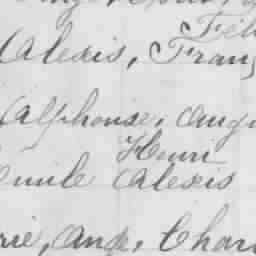 Fél
Alexis, Franç
Alphonse, Augu
Henri
Emile Alexis
rie, Ange, Char